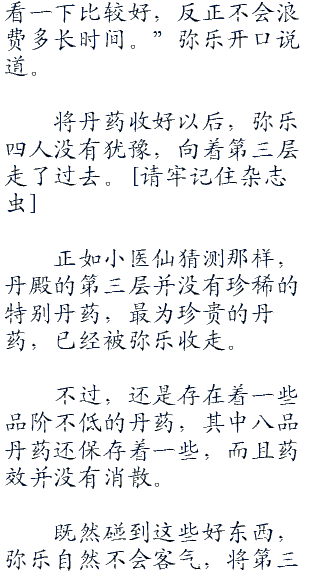 看一下比较好，反正不会浪
费多长时间。”弥乐开口说
道。
将丹药收好以后，弥乐
四人没有犹豫，向着第三层
走了过去。[请牢记住杂志
虫]
正如小医仙猜测那样，
丹殿的第三层并没有珍稀的
特别丹药，最为珍贵的丹
药，已经被弥乐收走。
不过，还是存在着一些
品阶不低的丹药，其中八品
丹药还保存着一些，而且药
效并没有消散。
既然碰到这些好东西，
弥乐自然不会客气，将第三